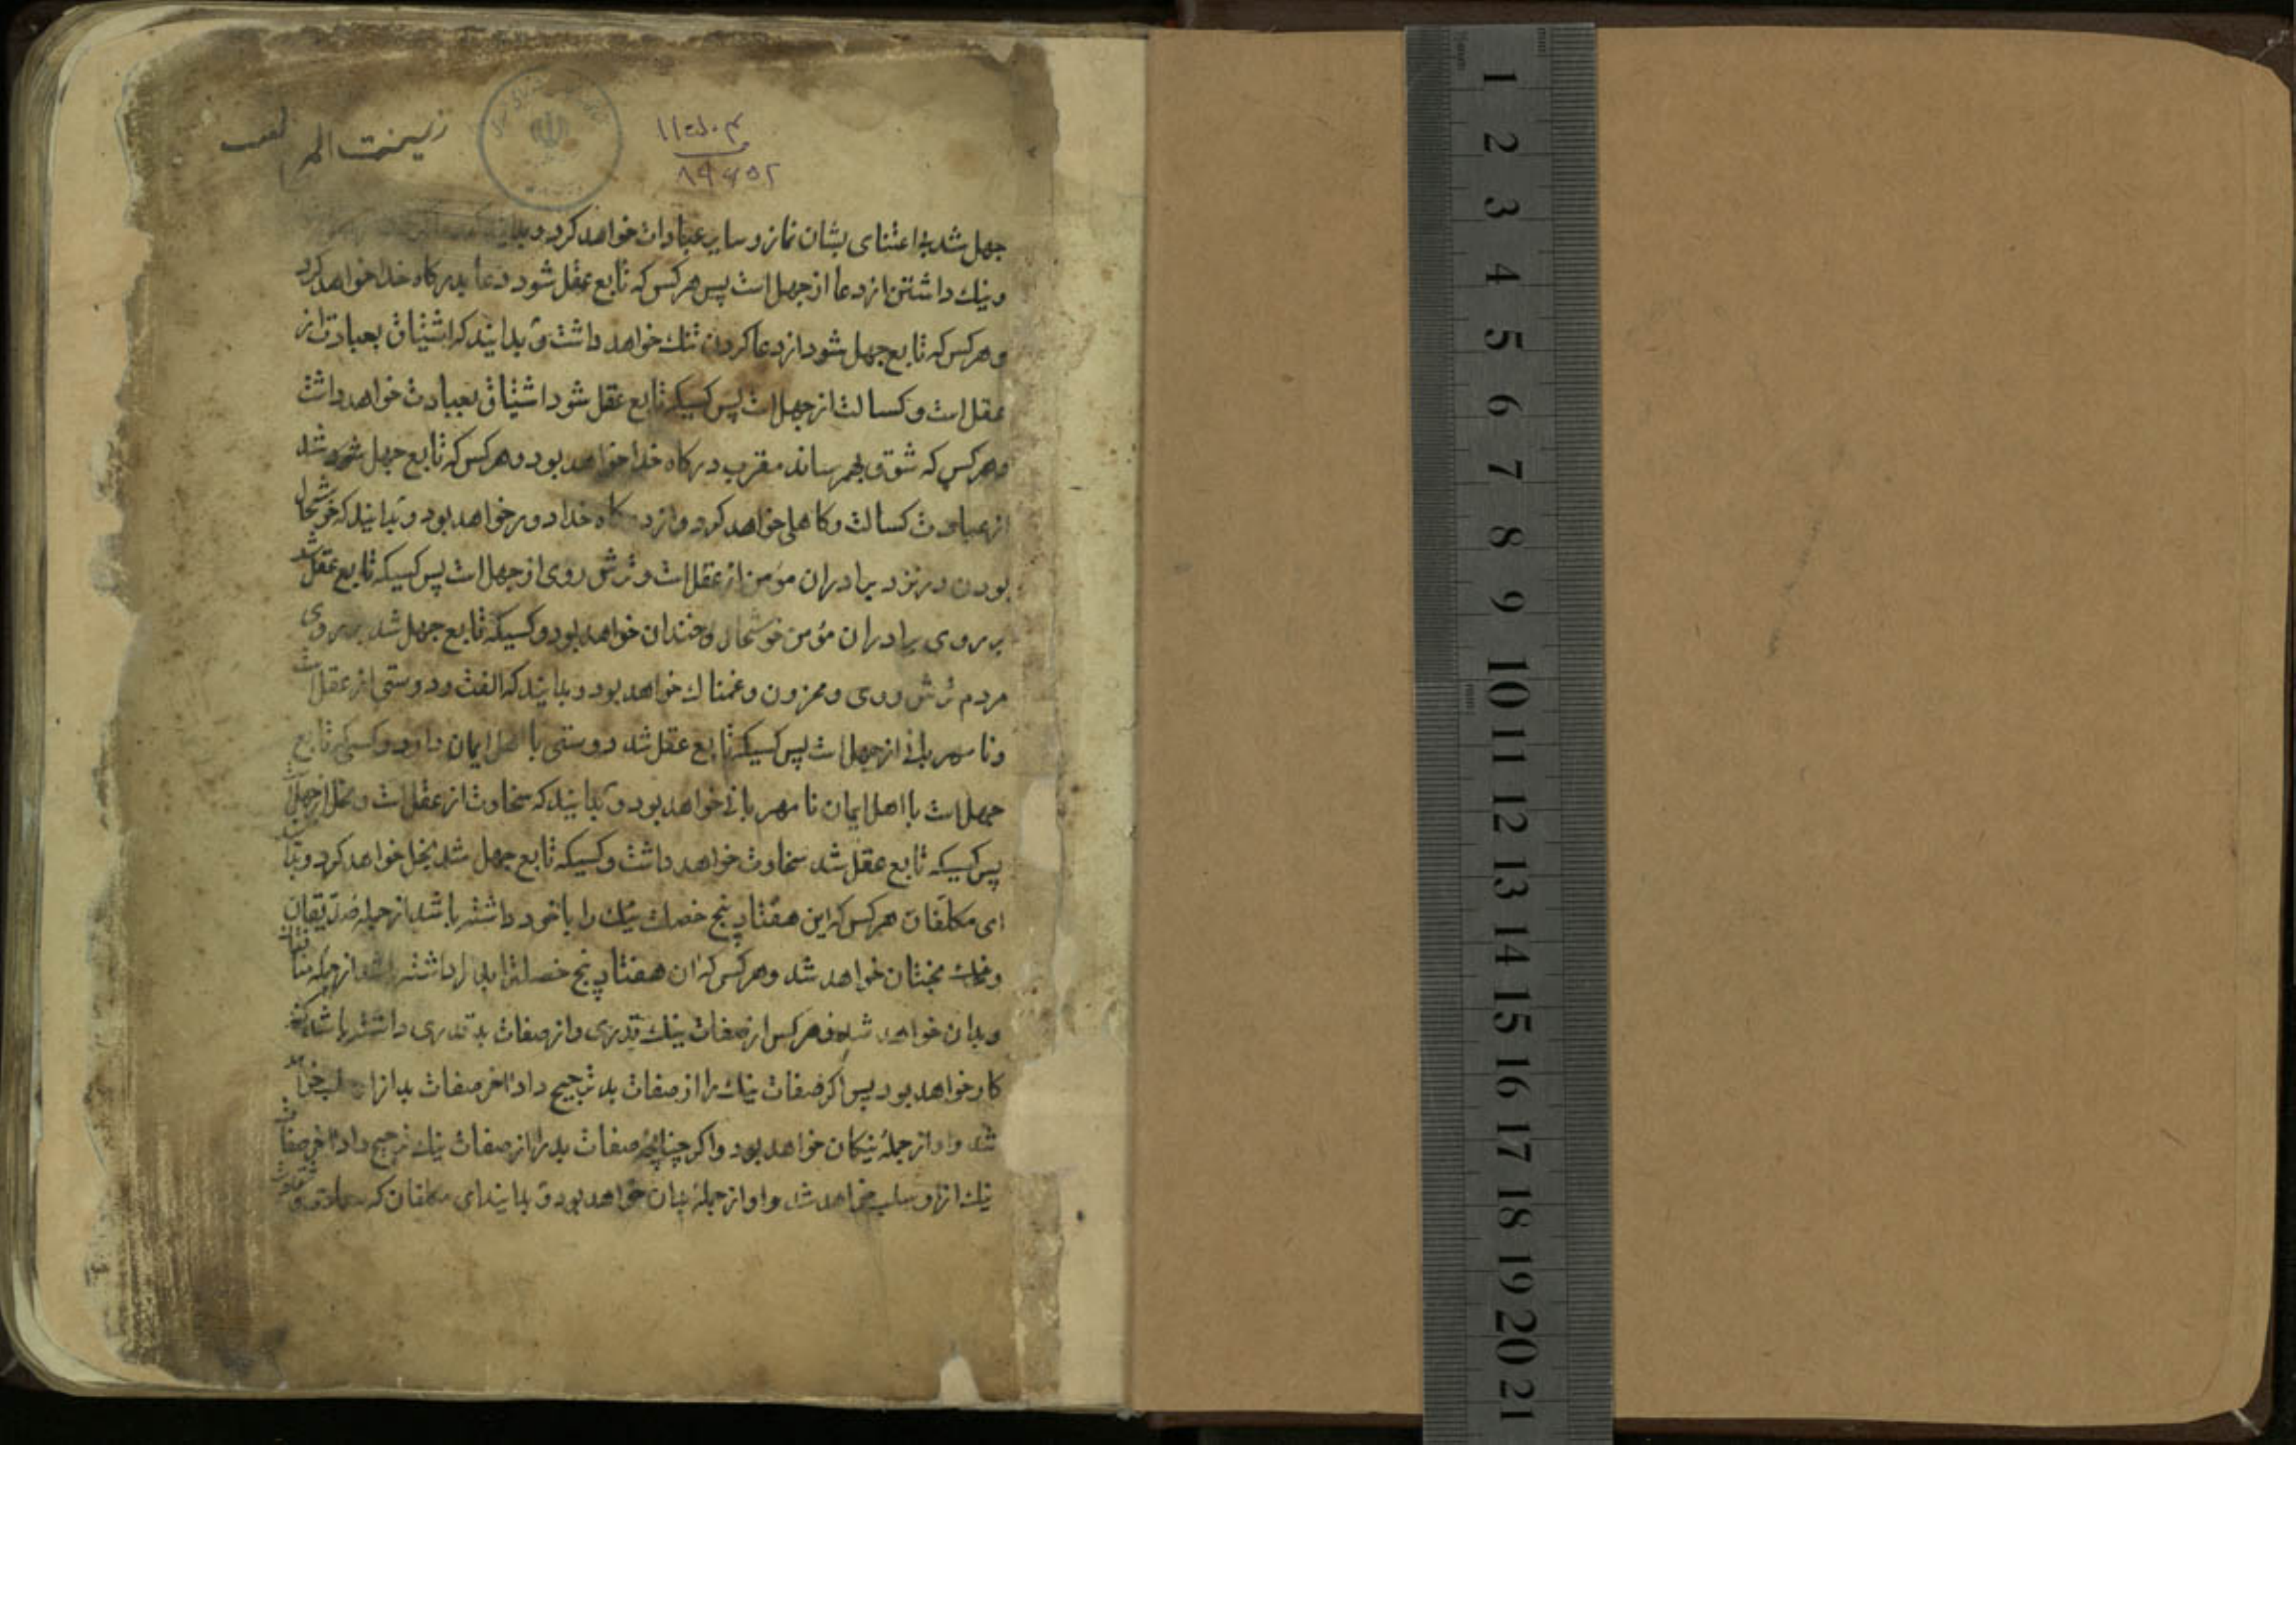 زینت
جهل شد بی اعتنای بشان نماز و سایر عبادات خواهد کرد و
و ننك داشتن از دعا از جهل است پس هر کس که تابع عقل شود دعا بدرکاه خدا خواهد کرد
و هر کس که تابع جهل شود از دعا کردن ننك خواهد داشت و بدانید که اشتیاق بعبادت از
عقل است و کسالت از جهل است پس کسیکه تابع عقل شود اشتیاق بعبادت خواهد داشت
و هر کس که شوق بهم رساند مقرب درکاه خدا خواهد بود و هر کس که تابع جهل شود
از عبادت کسالت و کاهلی خواهد کرد و از درکاه خدا دور خواهد بود و بدانید که خوشحال
بودن در نزد برادران مؤمن از عقل است و ترش روی از جهل است پس کسیکه تابع عقل شد
بر روی برادران مؤمن خوشحال و خندان خواهد بود و کسیکه تابع جهل شد بر روی
مردم ترش روی و محزون و غمناك خواهد بود و بدانید که الفت و دوستی از عقل است
و نا مهربانی از جهل است پس کسیکه تابع عقل شد دوستی با اهل ایمان دارد و کسیکه تابع
جهل است با اهل ایمان نا مهربانی خواهد بود و بدانید که سخاوت از عقل است و بخل از جهل است
پس کسیکه تابع عقل شد سخاوت خواهد داشت و کسیکه تابع جهل شد بخل خواهد کرد و بدانید
ای مکلفان هر کس که این هفتاد پنج خصلت نیك را با خود داشته باشد از جمله صدیقان
و نیك بختان خواهد شد و هر کس که ان هفتاد پنج خصلت را داشته باشد از جمله
و بدان خواهد شد و هر کس از صفات نیك قدری و از صفات بد قدری داشته باشد
کار خواهد بود پس اکر صفات نیك را از صفات بد ترجیح داد اخر صفات بد از او سلب خواهد
شد و او از جملۀ نیکان خواهد بود و اکر چنانچه صفات بد را از صفات نیك ترجیح داد اخر صفات
نیك از او سلب خواهد شد و او از جملۀ بدان خواهد بود و بدانید ای مکلفان که
1
2
3
4
5
6
7
8
9
10
11
12
13
14
15
16
17
18
19
20
21